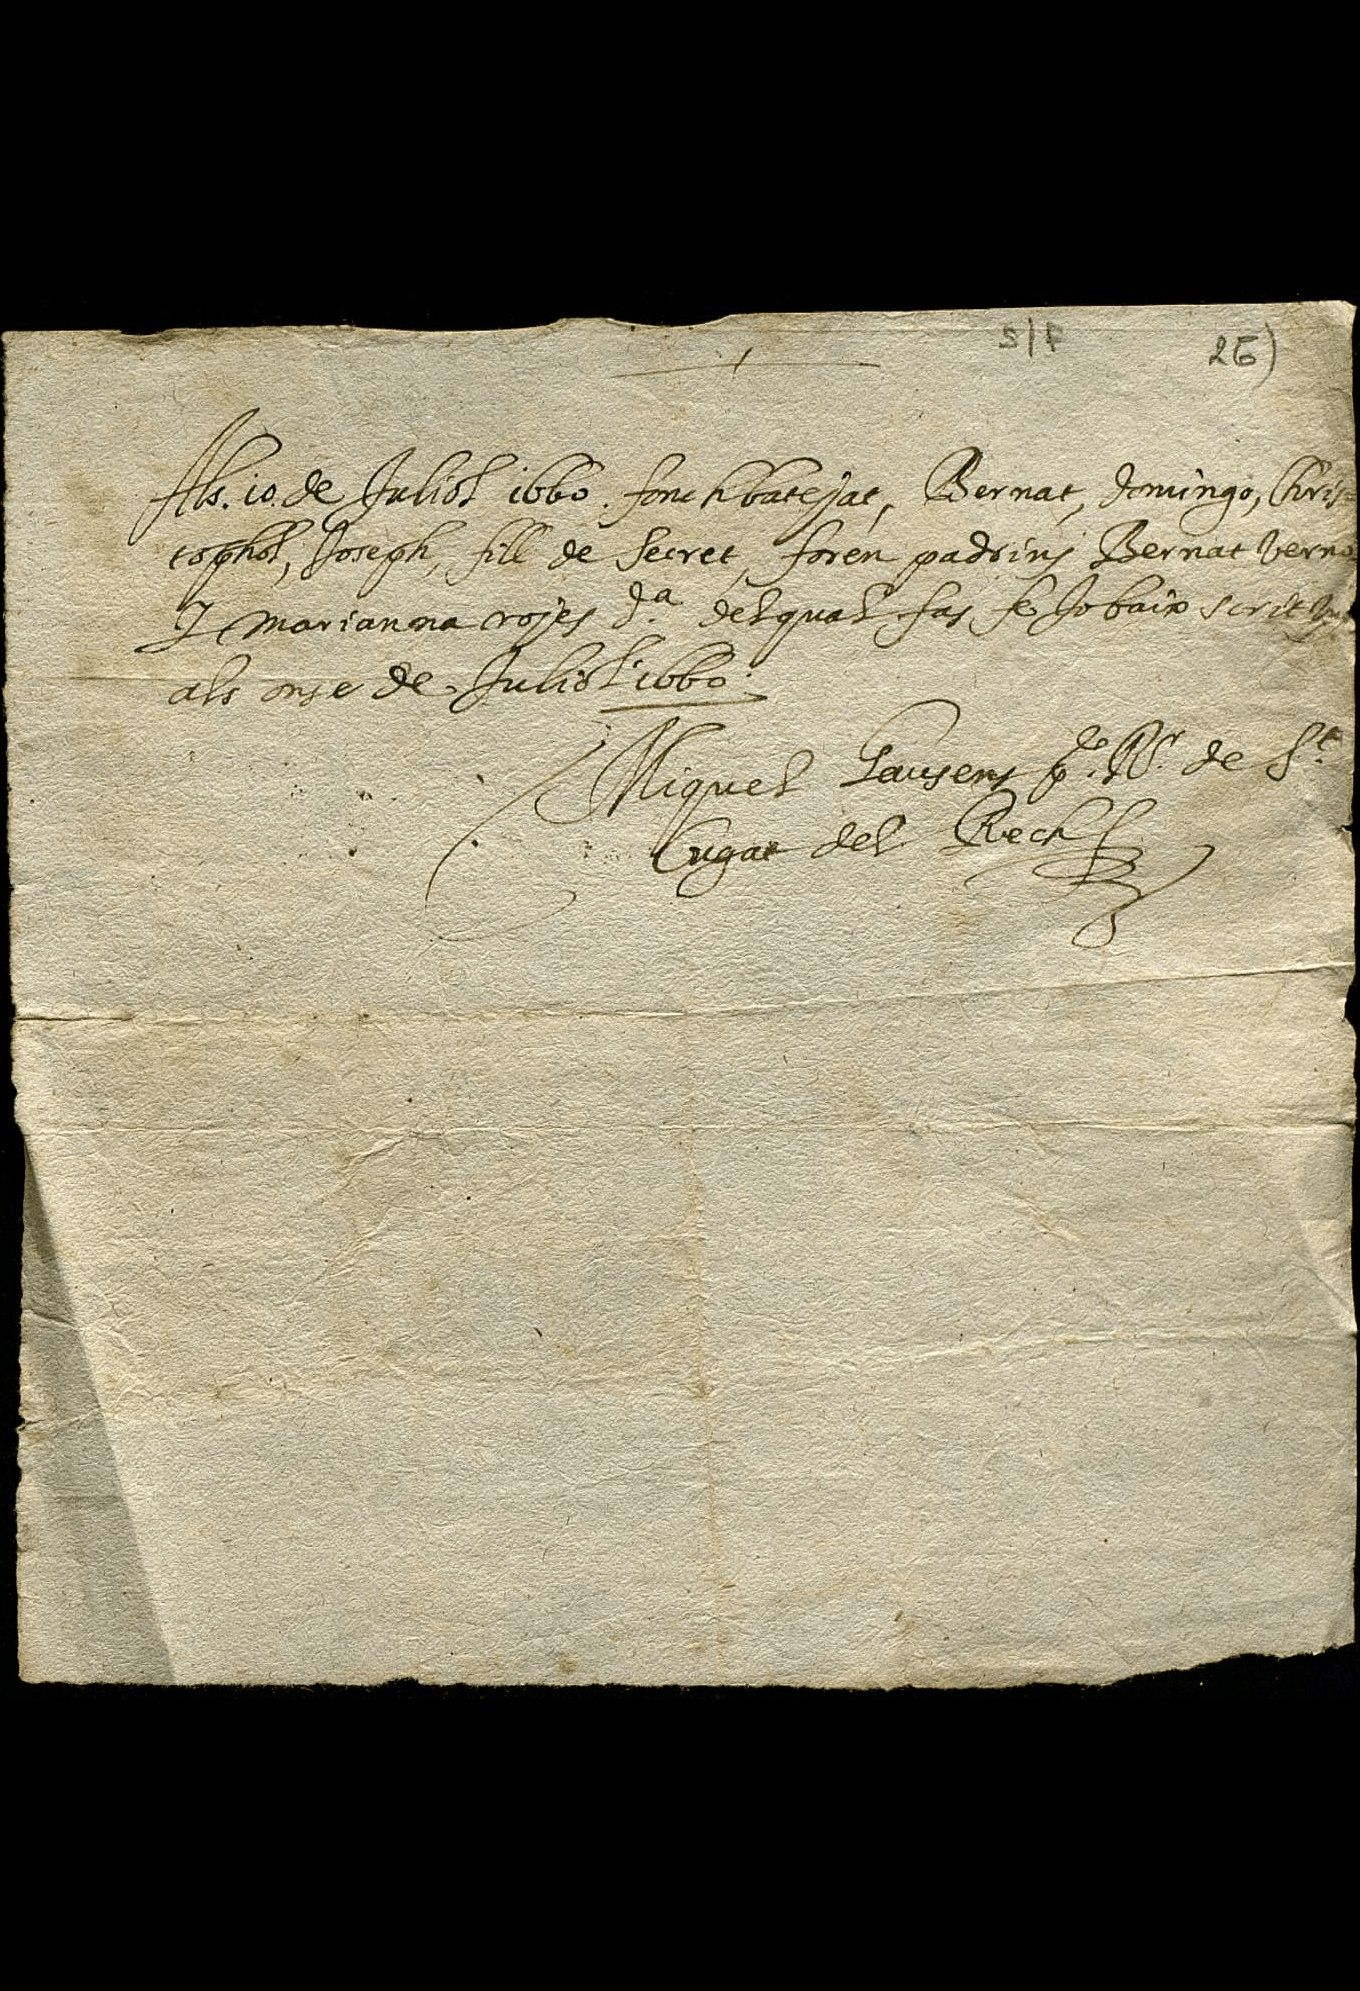 S/F 26)
Als. 10. de Juliol 1660. fonch batejat, Bernat, domingo, Chris-
tophol, Joseph, fill de secret, foren padrins Bernat verno
Y marianna rojes dª. del qual fas fe Jo baix scrit
als onse de Juliol 1660.
Miquel pre. Rr. de St.
Cugat del Rech